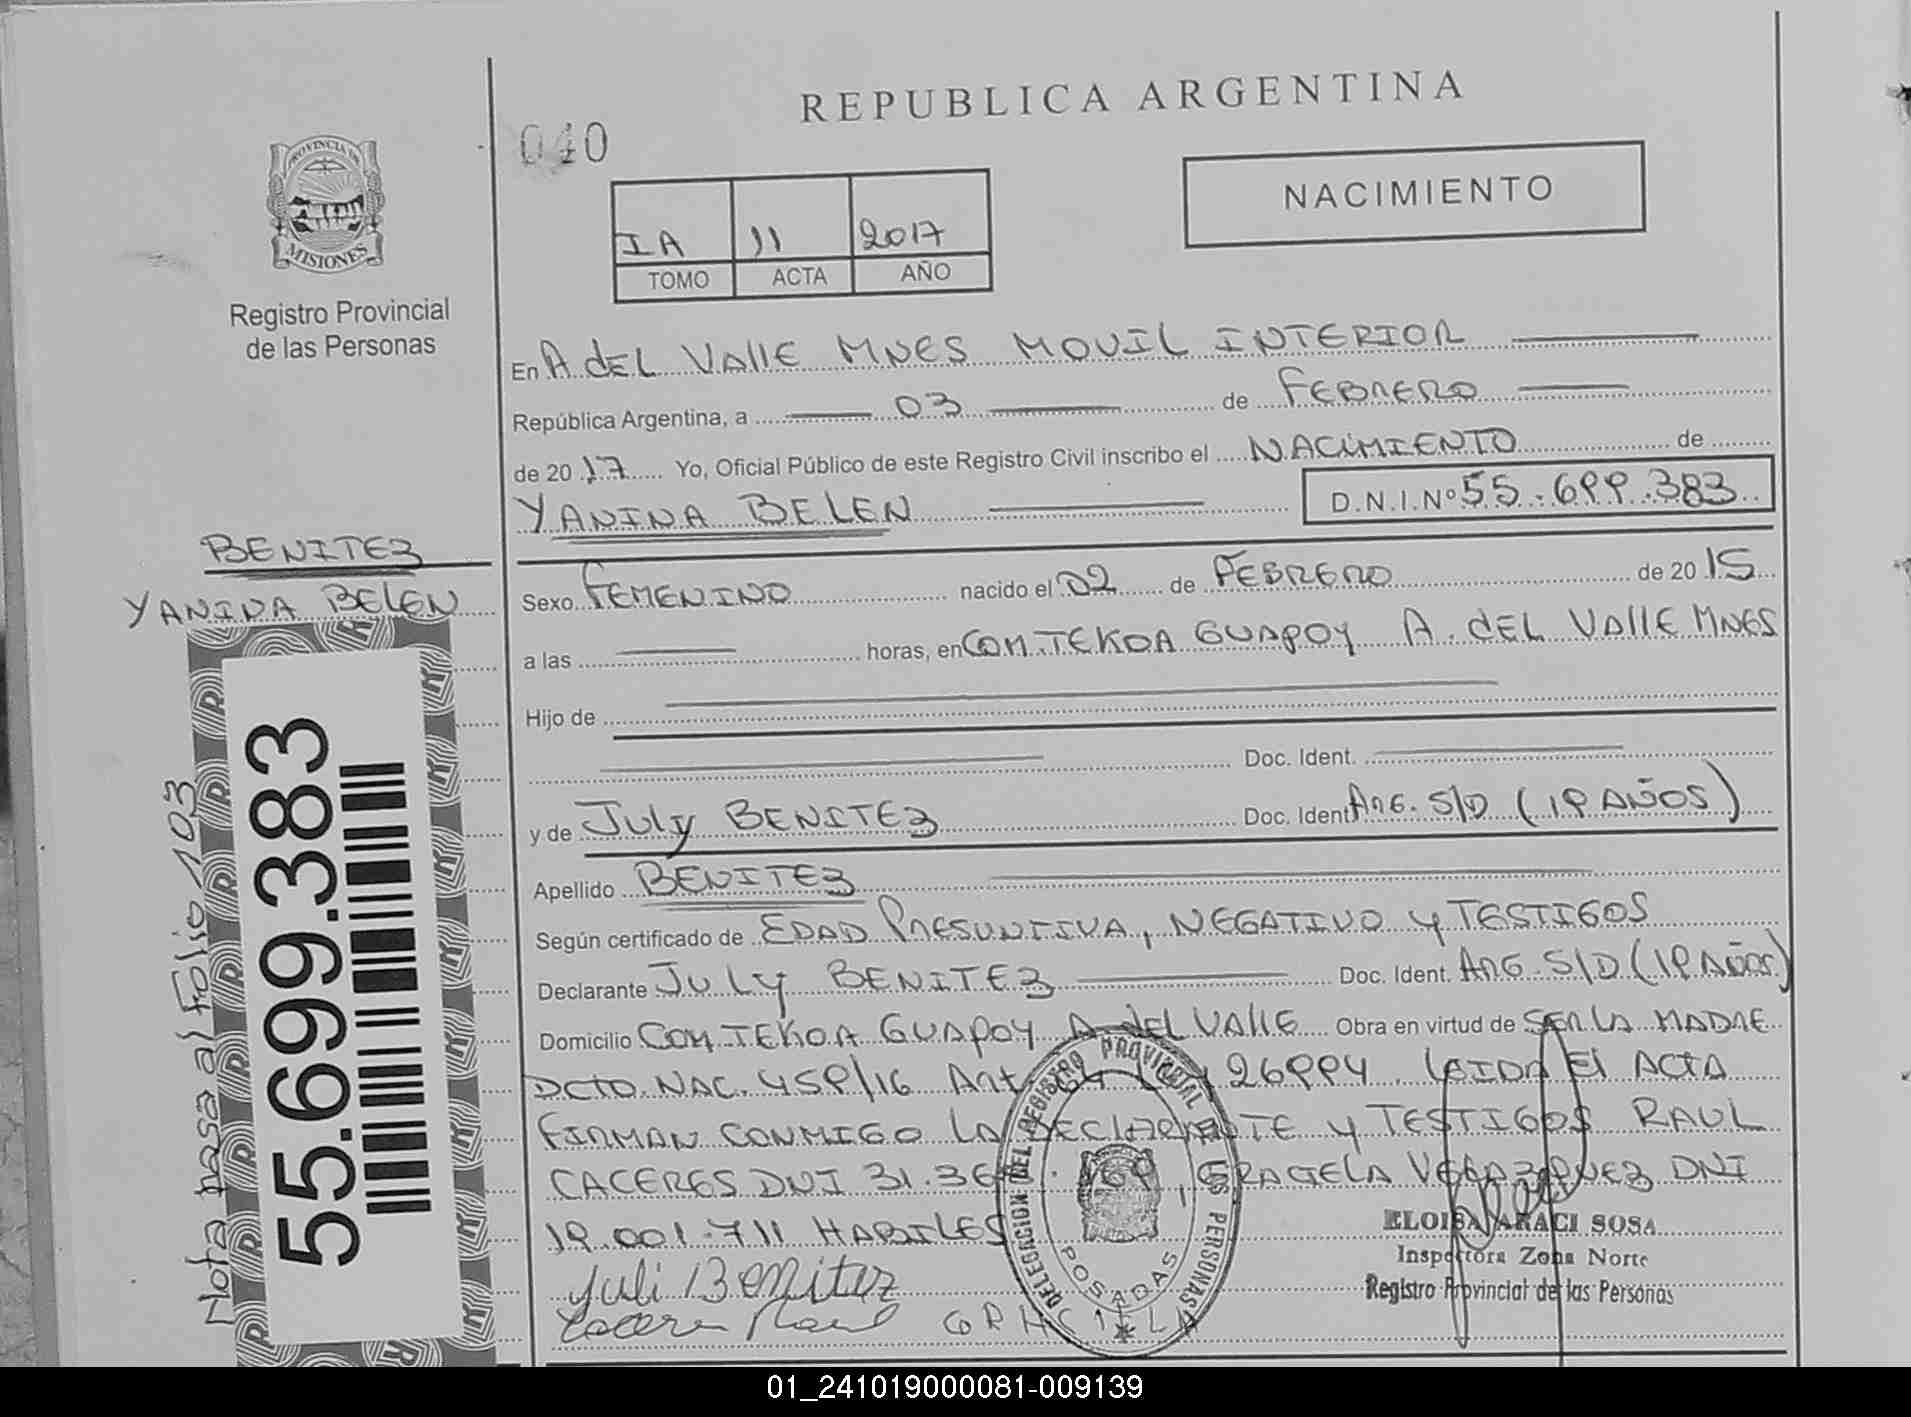 REPUBLICA ARGENTINA
040
NACIMIENTO
PROVINCIA DE
MISIONES
Registro Provincial
de las Personas
IA 11 2017
TOMO ACTA AÑO
En A. DEL VALLE MNES MOVIL INTERIOR
República Argentina, a 03 de FEBRERO
de 2017 Yo, Oficial Público de este Registro Civil inscribo el NACIMIENTO de
YANINA BELEN D.N.I.Nº 55.699.383
BENITEZ
YANINA BELEN
Sexo FEMENINO nacido el 02 de FEBRERO de 2015
a las horas, en COM. TEKOA GUAPOY A. DEL VALLE MNES
Hijo de
Doc. Ident.
y de July BENITEZ Doc. Ident. ARG. S/D (19 AÑOS)
Apellido BENITEZ
Según certificado de EDAD PRESUNTIVA, NEGATIVO y TESTIGOS
Declarante July BENITEZ Doc. Ident. ARG. S/D (19 AÑOS)
Domicilio COM. TEKOA GUAPOY A. DEL VALLE Obra en virtud de SER LA MADRE
DCTO. NAC. 459/16 Art. 26994. LEIDA El ACTA
FIRMAN CONMIGO LA DECLARANTE y TESTIGOS RAUL
CACERES DNI 31.36 .169, GRACIELA DNI
19.001.711 HABILES
ELOISA ARACI SOSA
Inspectora Zona Norte
Registro Provincial de las Personas
yuli Benitez
Caceres Raul GRACIELA
DELEGACION DEL REGISTRO PROVINCIAL DE LAS PERSONAS
POSADAS
55.699.383
Nota pasa al Folio 103
01_241019000081-009139